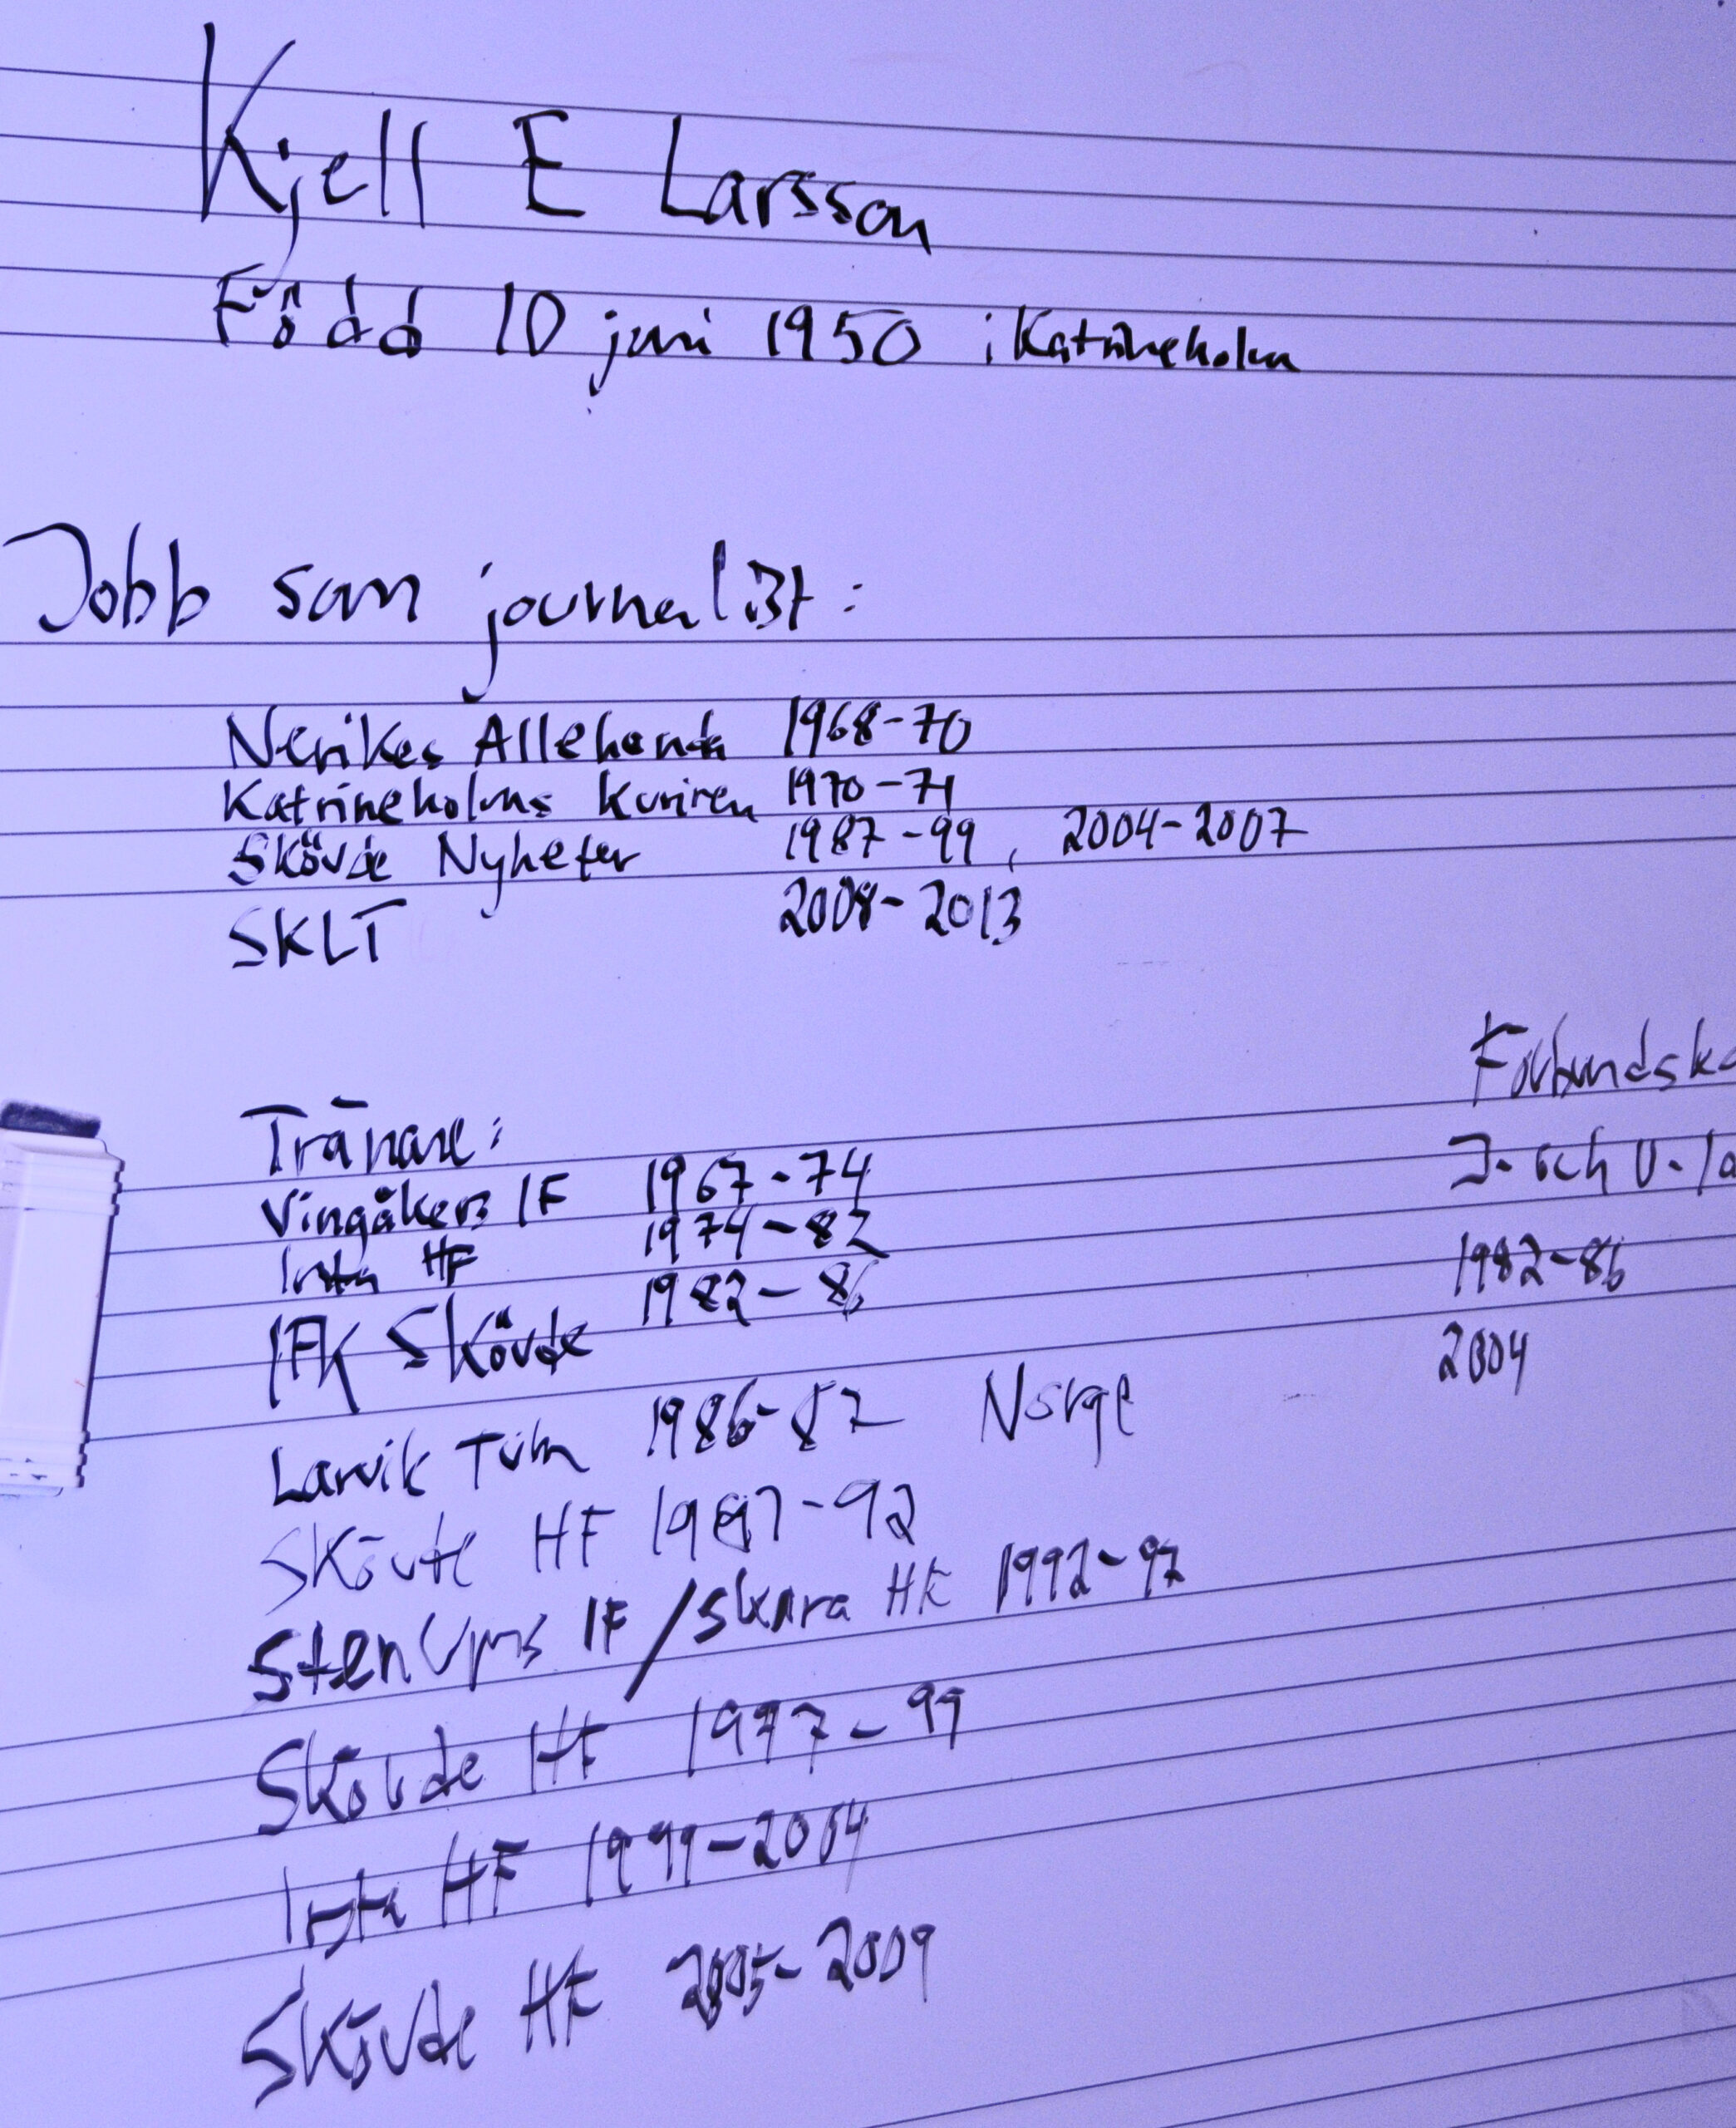 Kjell E Larsson
Född 10 juni 1950 i Katrineholm
Jobb som journalist:
Nerikes Allehanda 1968-70
Katrineholms Kuriren 1970-71
Skövde Nyheter 1987-99, 2004-2007
SKLT 2008-2013
Tränare:
Vingåkers IF 1967-74
Irsta HF 1974-82
IFK Skövde 1982-86
Larvik Turn 1986-87 Norge
Skövde HF 1987-92
Stenstorps IF/Skara HF 1992-97
Skövde HF 1997-99
Irsta HF 1999-2004
Skövde HF 2005-2009
Förbundska
J- och U-la
1982-86
2004